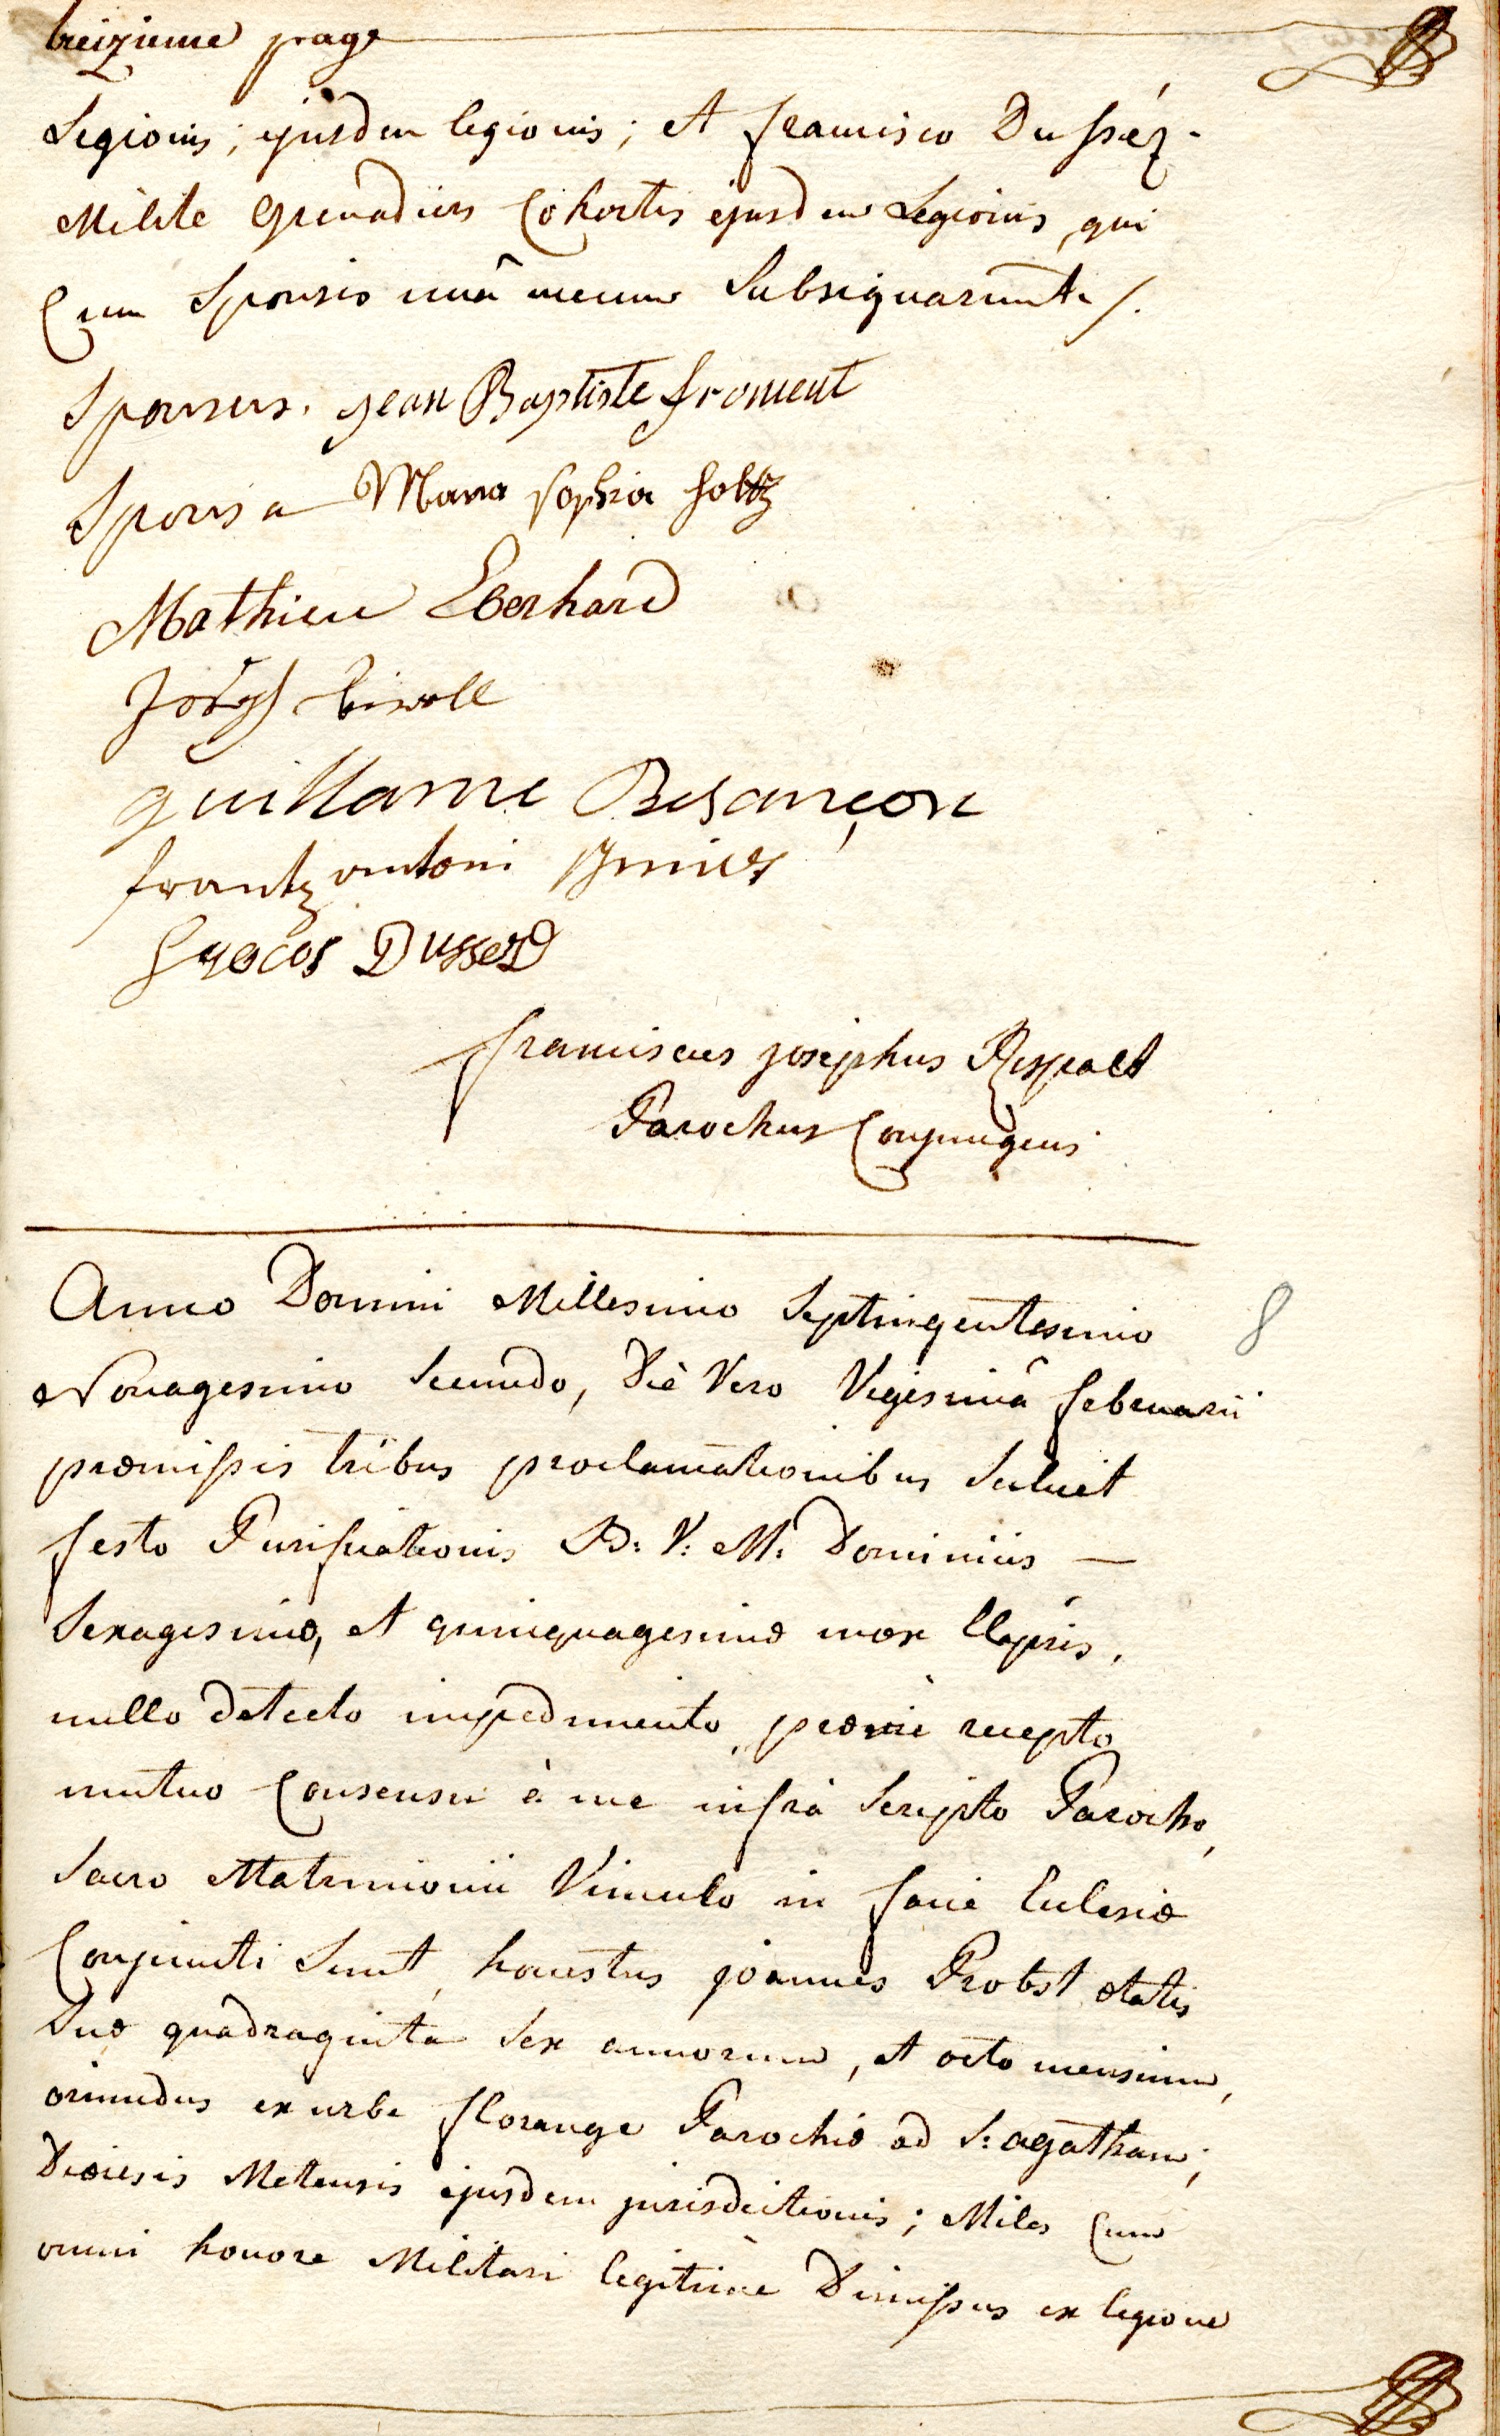 treizieme page
Legionis; ejusdem legionis; et francisco Dussèz
Milite Grenadiers Cohortis ejusdem Legionis, qui
Cum Sponsis unâ mecum Subsignarunt./.
Sponsus. jean Baptiste froment
Sponsa Maria Sophia Holtz
Mathieu Eberhard
Joseph
guillame Besançon
frantz antoni
Dusserd
franciscus josephus Rispalt
Parochus Conjungens
Anno Domini Millesimo Septingentesimo 8
Nonagesimo Secundo, Diè Vero Vigesimâ februarii
præmissis tribus proclamationibus Scilicet
festo Purificationis B: V: M: Dominicis —
Sexagesimæ, et quinquagesimæ mox Elapsis,
nullo detecto impedimento, recepto
mutuo Consensu à me infrà Scripto Parocho,
Sacro Matrimonii Vinculo in facie Ecclesiæ
Conjuncti Sunt, honestus joannes Probst ætatis
Suæ quadraginta Sex annorum, et octo mensium,
oriundus ex urbe florange Parochiæ ad S: agatham;
Diœcesis Metensis ejusdem jurisdictionis; Miles Cum
omni honore Militari legitimè Dimissus ex legione